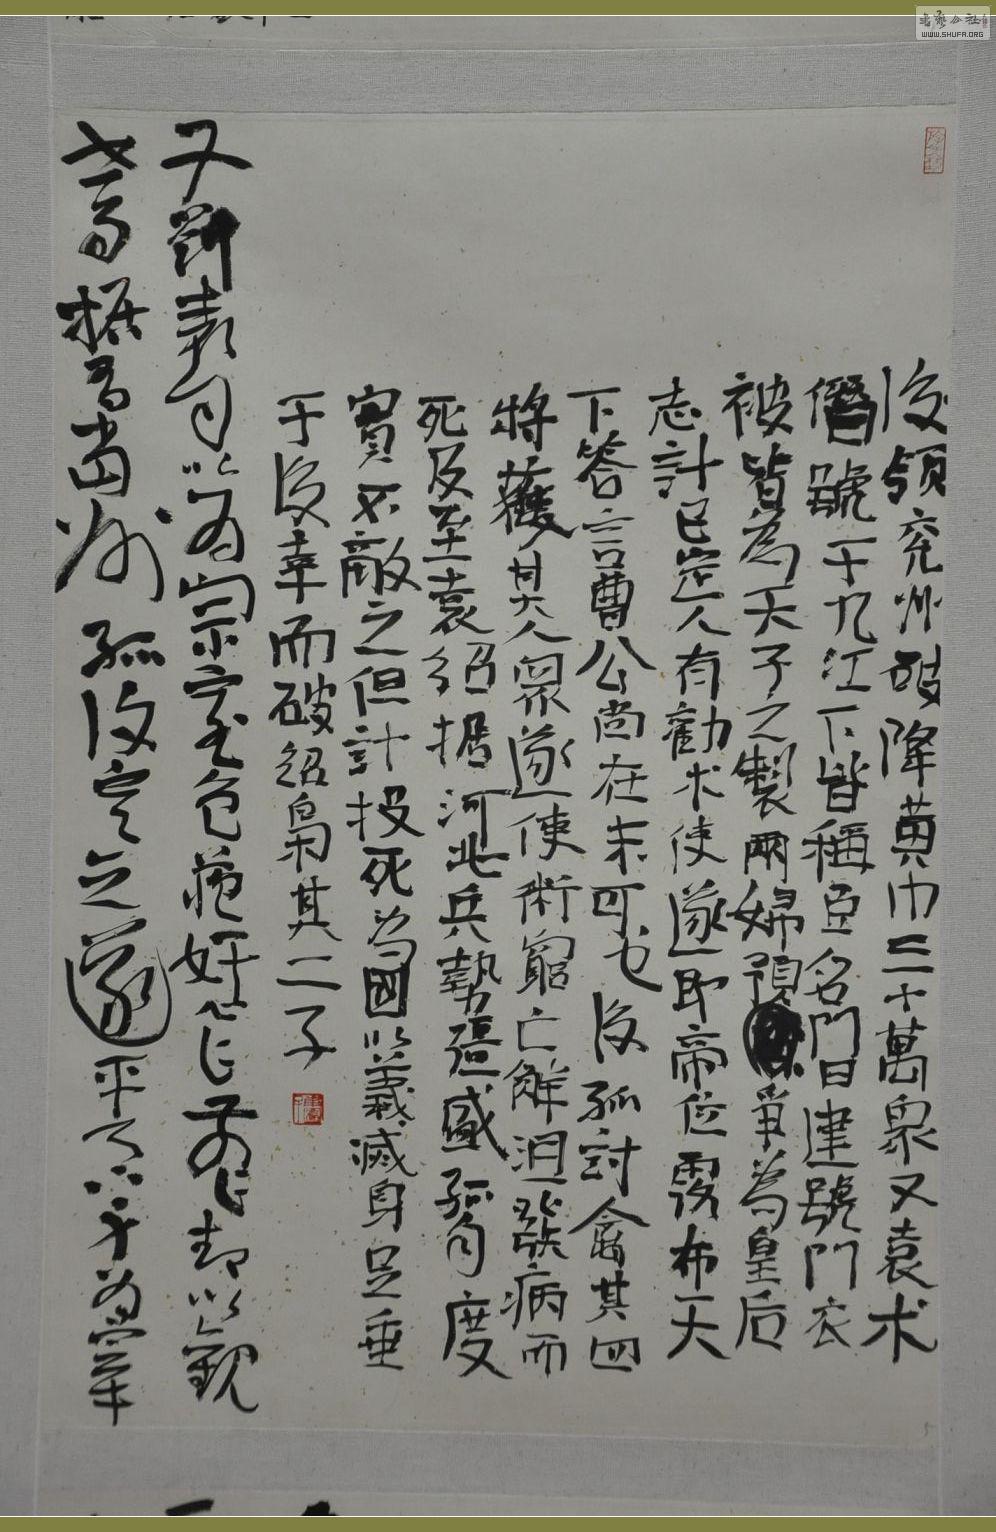 後領兗州破降黃巾三十萬眾又袁术
僭號于九江下皆稱臣名門曰建號門衣
被皆為天子之製兩婦預爭為皇后
志計已定人有勸术使遂即帝位露布天
下答言曹公尚在未可也後孤討禽其四
將獲其人眾遂使術窮亡解沮發病而
死及至袁紹據河北兵勢彊盛孤自度
實不敵之但計投死為國以義滅身足垂
于後幸而破紹梟其二子
又劉表自以為宗室包藏奸心乍前乍却以觀
世事據有當州孤復定之遂平天下身為宰
WWW.SHUFA.ORG